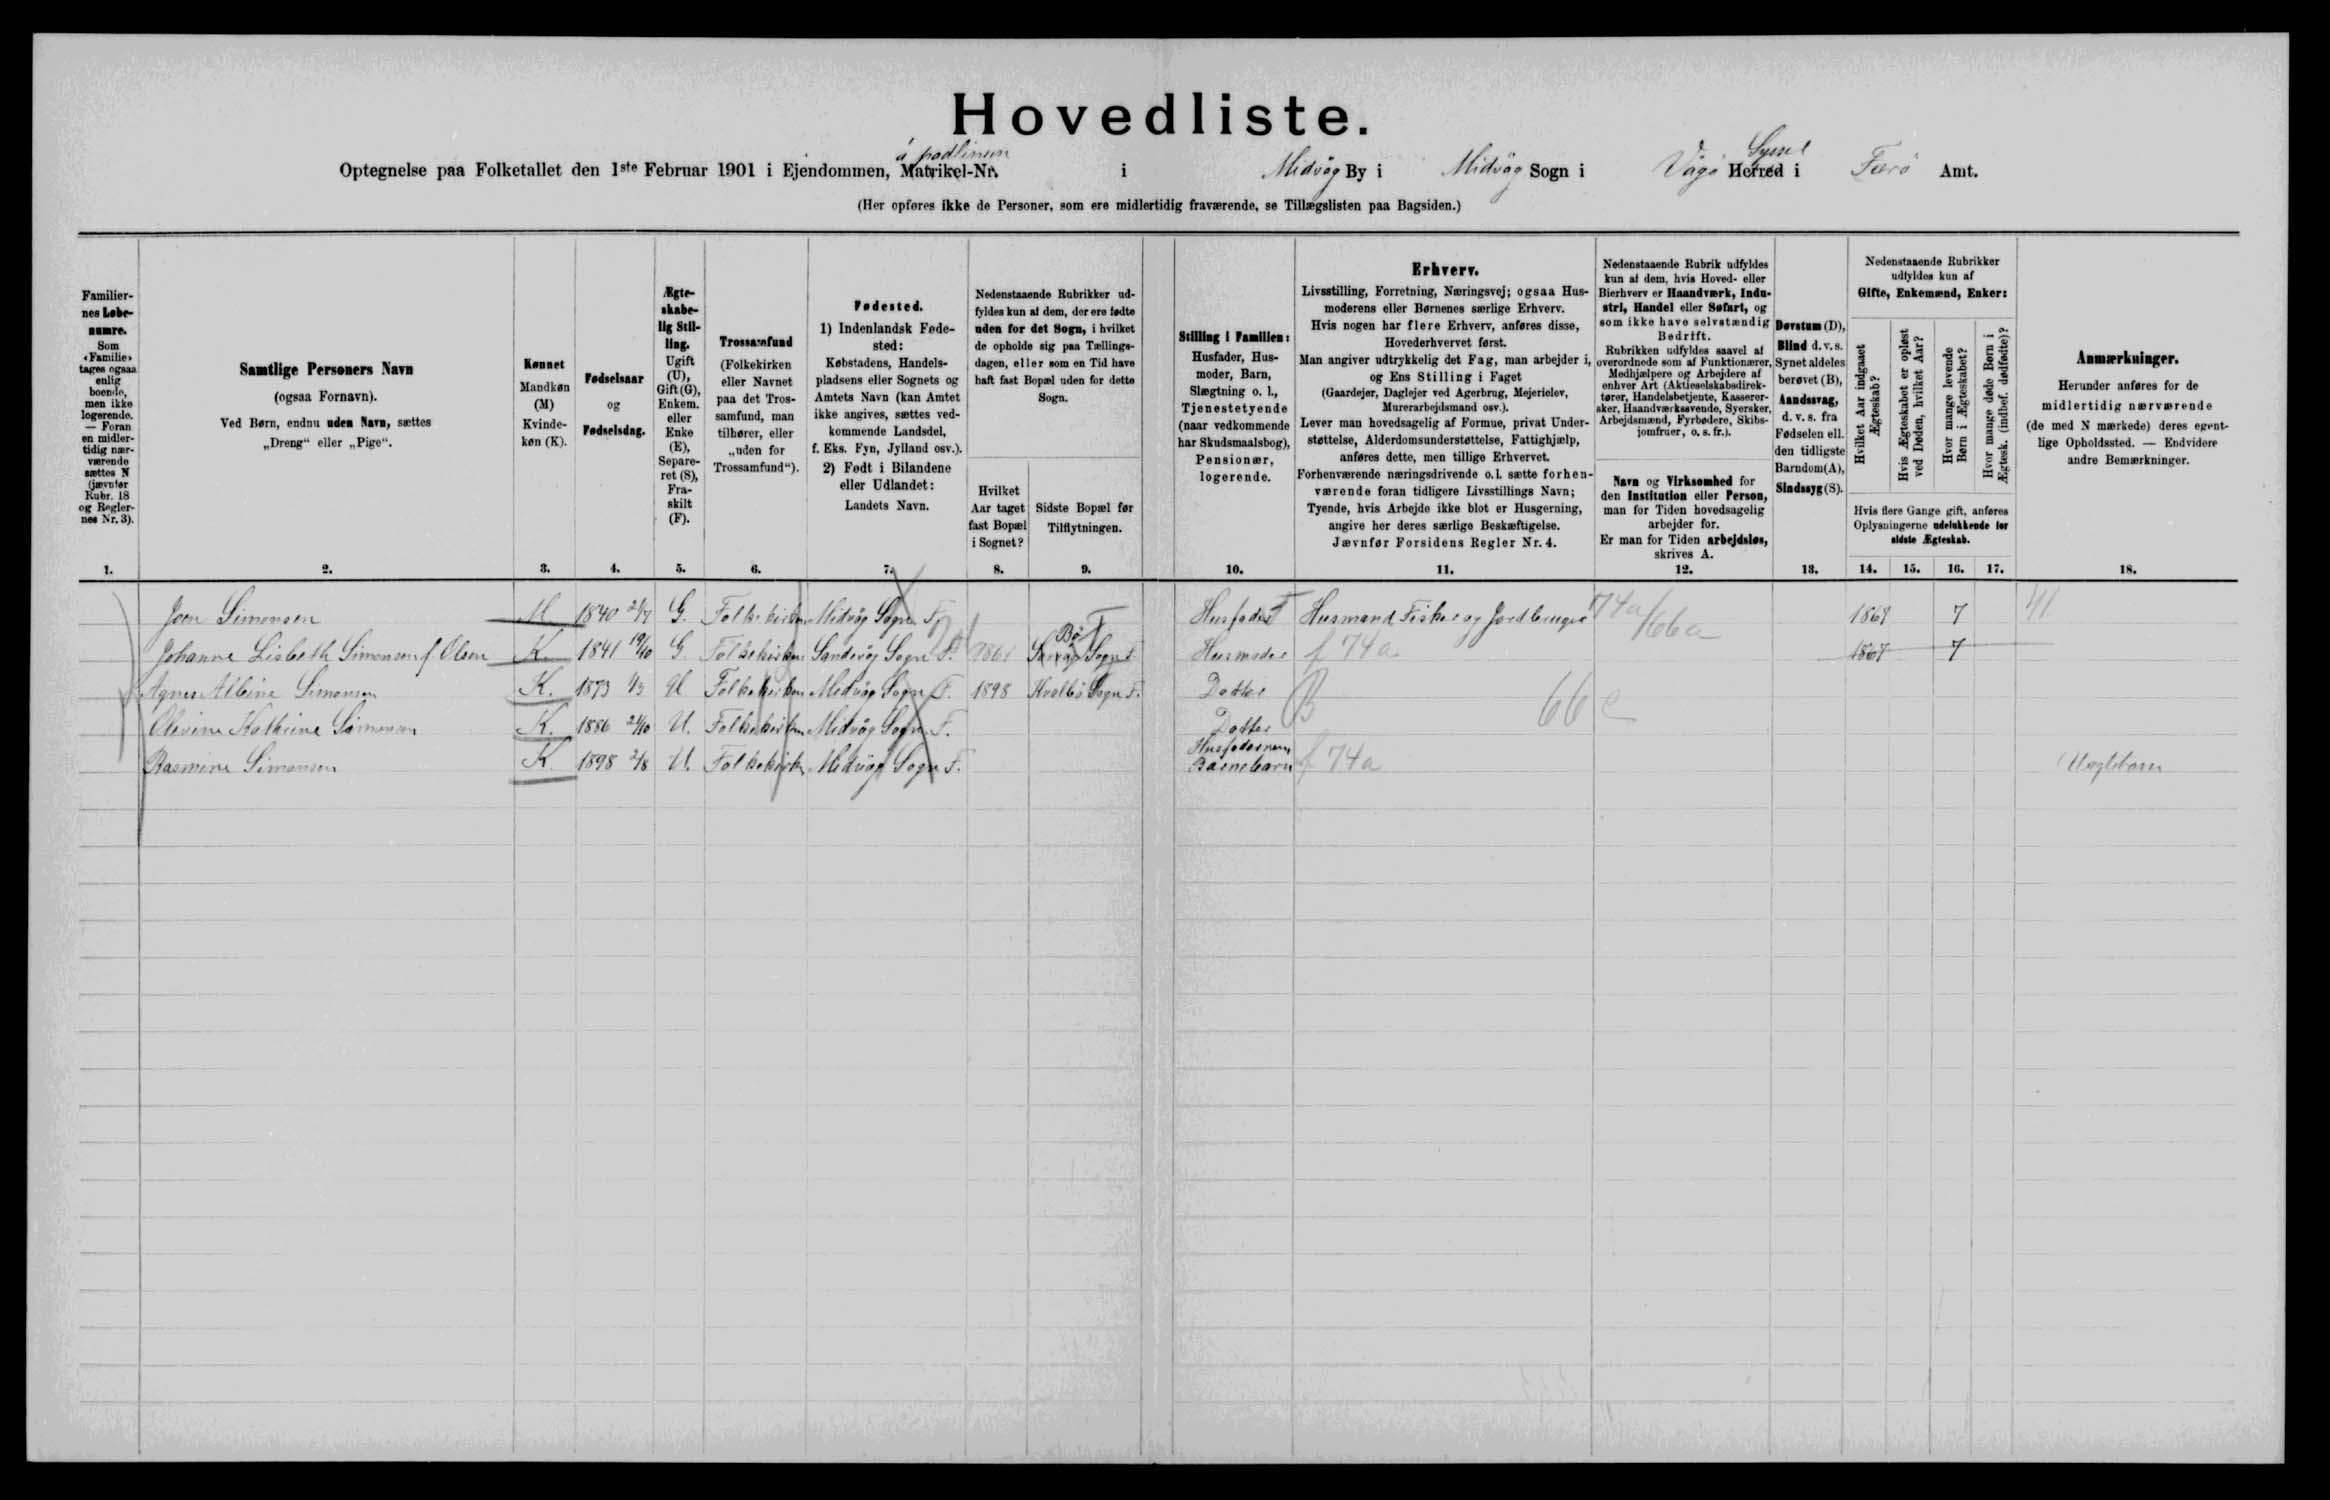 Hovedliste.
á padlinum
Syssel
Optegnelse paa Folketallet den 1ste Februar 1901 i Ejendommen, Matrikel-Nr. i Midvåg By i Midvåg Sogn i Vågø Herred i Færö Amt.
(Her opføres ikke de Personer, som ere midlertidig fraværende, se Tillægslisten paa Bagsiden.)
Familier-
nes Løbe-
numre.
Som
«Familie»
tages ogsaa
enlig
boende,
men ikke
logerende.
— Foran
en midler-
tidig nær-
værende
sættes N
(jævnfør
Rubr. 18
og Regler-
nes Nr. 3).
1.
Samtlige Personers Navn
(ogsaa Fornavn).
Ved Børn, endnu uden Navn, sættes
„Dreng“ eller „Pige“.
2.
Kønnet
Mandkøn
(M)
Kvinde-
køn (K).
3.
Fødselsaar
og
Fødselsdag.
4.
Ægte-
skabe-
lig Stil-
ling.
Ugift
(U),
Gift (G),
Enkem.
eller
Enke
(E),
Separe-
ret (S),
Fra-
skilt
(F).
5.
Trossamfund
(Folkekirken
eller Navnet
paa det Tros-
samfund, man
tilhører, eller
„uden for
Trossamfund“).
6.
Fødested.
1) Indenlandsk Føde-
sted:
Købstadens, Handels-
pladsens eller Sognets og
Amtets Navn (kan Amtet
ikke angives, sættes ved-
kommende Landsdel,
f. Eks. Fyn, Jylland osv.).
2) Født i Bilandene
eller Udlandet:
Landets Navn.
7.
Nedenstaaende Rubrikker ud-
fyldes kun af dem, der ere fødte
uden for det Sogn, i hvilket
de opholde sig paa Tællings-
dagen, eller som en Tid have
haft fast Bopæl uden for dette
Sogn.
Hvilket
Aar taget
fast Bopæl
i Sognet?
8.
Sidste Bopæl før
Tilflytningen.
9.
Stilling i Familien:
Husfader, Hus-
moder, Barn,
Slægtning o. l.,
Tjenestetyende
(naar vedkommende
har Skudsmaalsbog),
Pensionær,
logerende.
10.
Erhverv.
Livsstilling, Forretning, Næringsvej; ogsaa Hus-
moderens eller Børnenes særlige Erhverv.
Hvis nogen har flere Erhverv, anføres disse,
Hovederhvervet først.
Man angiver udtrykkelig det Fag, man arbejder i,
og Ens Stilling i Faget
(Gaardejer, Daglejer ved Agerbrug, Mejerielev,
Murerarbejdsmand osv.).
Lever man hovedsagelig af Formue, privat Under-
støttelse, Alderdomsunderstøttelse, Fattighjælp,
anføres dette, men tillige Erhvervet.
Forhenværende næringsdrivende o.l. sætte forhen-
værende foran tidligere Livsstillings Navn;
Tyende, hvis Arbejde ikke blot er Husgerning,
angive her deres særlige Beskæftigelse.
Jævnfør Forsidens Regler Nr. 4.
11.
Nedenstaaende Rubrik udfyldes
kun af dem, hvis Hoved- eller
Bierhverv er Haandværk, Indu-
stri, Handel eller Søfart, og
som ikke have selvstændig
Bedrift.
Rubrikken udfyldes saavel af
overordnede som af Funktionærer,
Medhjælpere og Arbejdere af
enhver Art (Aktieselskabsdirek-
tører, Handelsbetjente, Kasserer-
sker, Haandværkssvende, Syersker,
Arbejdsmænd, Fyrbødere, Skibs-
jomfruer, o. s. fr.).
Navn og Virksomhed for
den Institution eller Person,
man for Tiden hovedsagelig
arbejder for.
Er man for Tiden arbejdsløs,
skrives A.
12.
Døvstum (D),
Blind d. v. s.
Synet aldeles
berøvet (B),
Aandssvag,
d. v. s. fra
Fødselen ell.
den tidligste
Barndom(A),
Sindssyg (S).
13.
Nedenstaaende Rubrikker
udfyldes kun af
Gifte, Enkemænd, Enker:
Hvilket Aar indgaaet
Ægteskab?
Hvis Ægteskabet er opløst
ved Døden, hvilket Aar?
Hvor mange levende
Børn i Ægteskabet?
Hvor mange døde Børn i
Ægtesk. (indbef. dødfødte)?
Hvis flere Gange gift, anføres
Oplysningerne udelukkende for
sidste Ægteskab.
14. 15. 16. 17.
Anmærkninger.
Herunder anføres for de
midlertidig nærværende
(de med N mærkede) deres egent-
lige Opholdssted. — Endvidere
andre Bemærkninger.
18.
Joen Simonsen M 1840 2/7 G. Folkekirken Midvåg Sogn F. Husfader F Husmand Fisker og Jordbruger 74a/66a 1867 7 41
Johanne Lisbeth Simonsen f. Olsen K 1841 19/10 G Folkekirken Sandevåg Sogn F. 1861 Bö Sogn F. Husmoder f 74a 1867 7
Agnes Albine Simonsen K. 1873 1/3 U Folkekirken Midvåg Sogn F. 1898 Kvalbö Sogn F. Datter B 66 c
Olevine Kathrine Simonsen K. 1886 21/10 U. Folkekirken Midvåg Sogn F. Datter
Rasmine Simonsen K 1898 2/8 U. Folkekirken Midvåg Sogn F. Husfaderens Barnebarn f 74a Uægtebaren